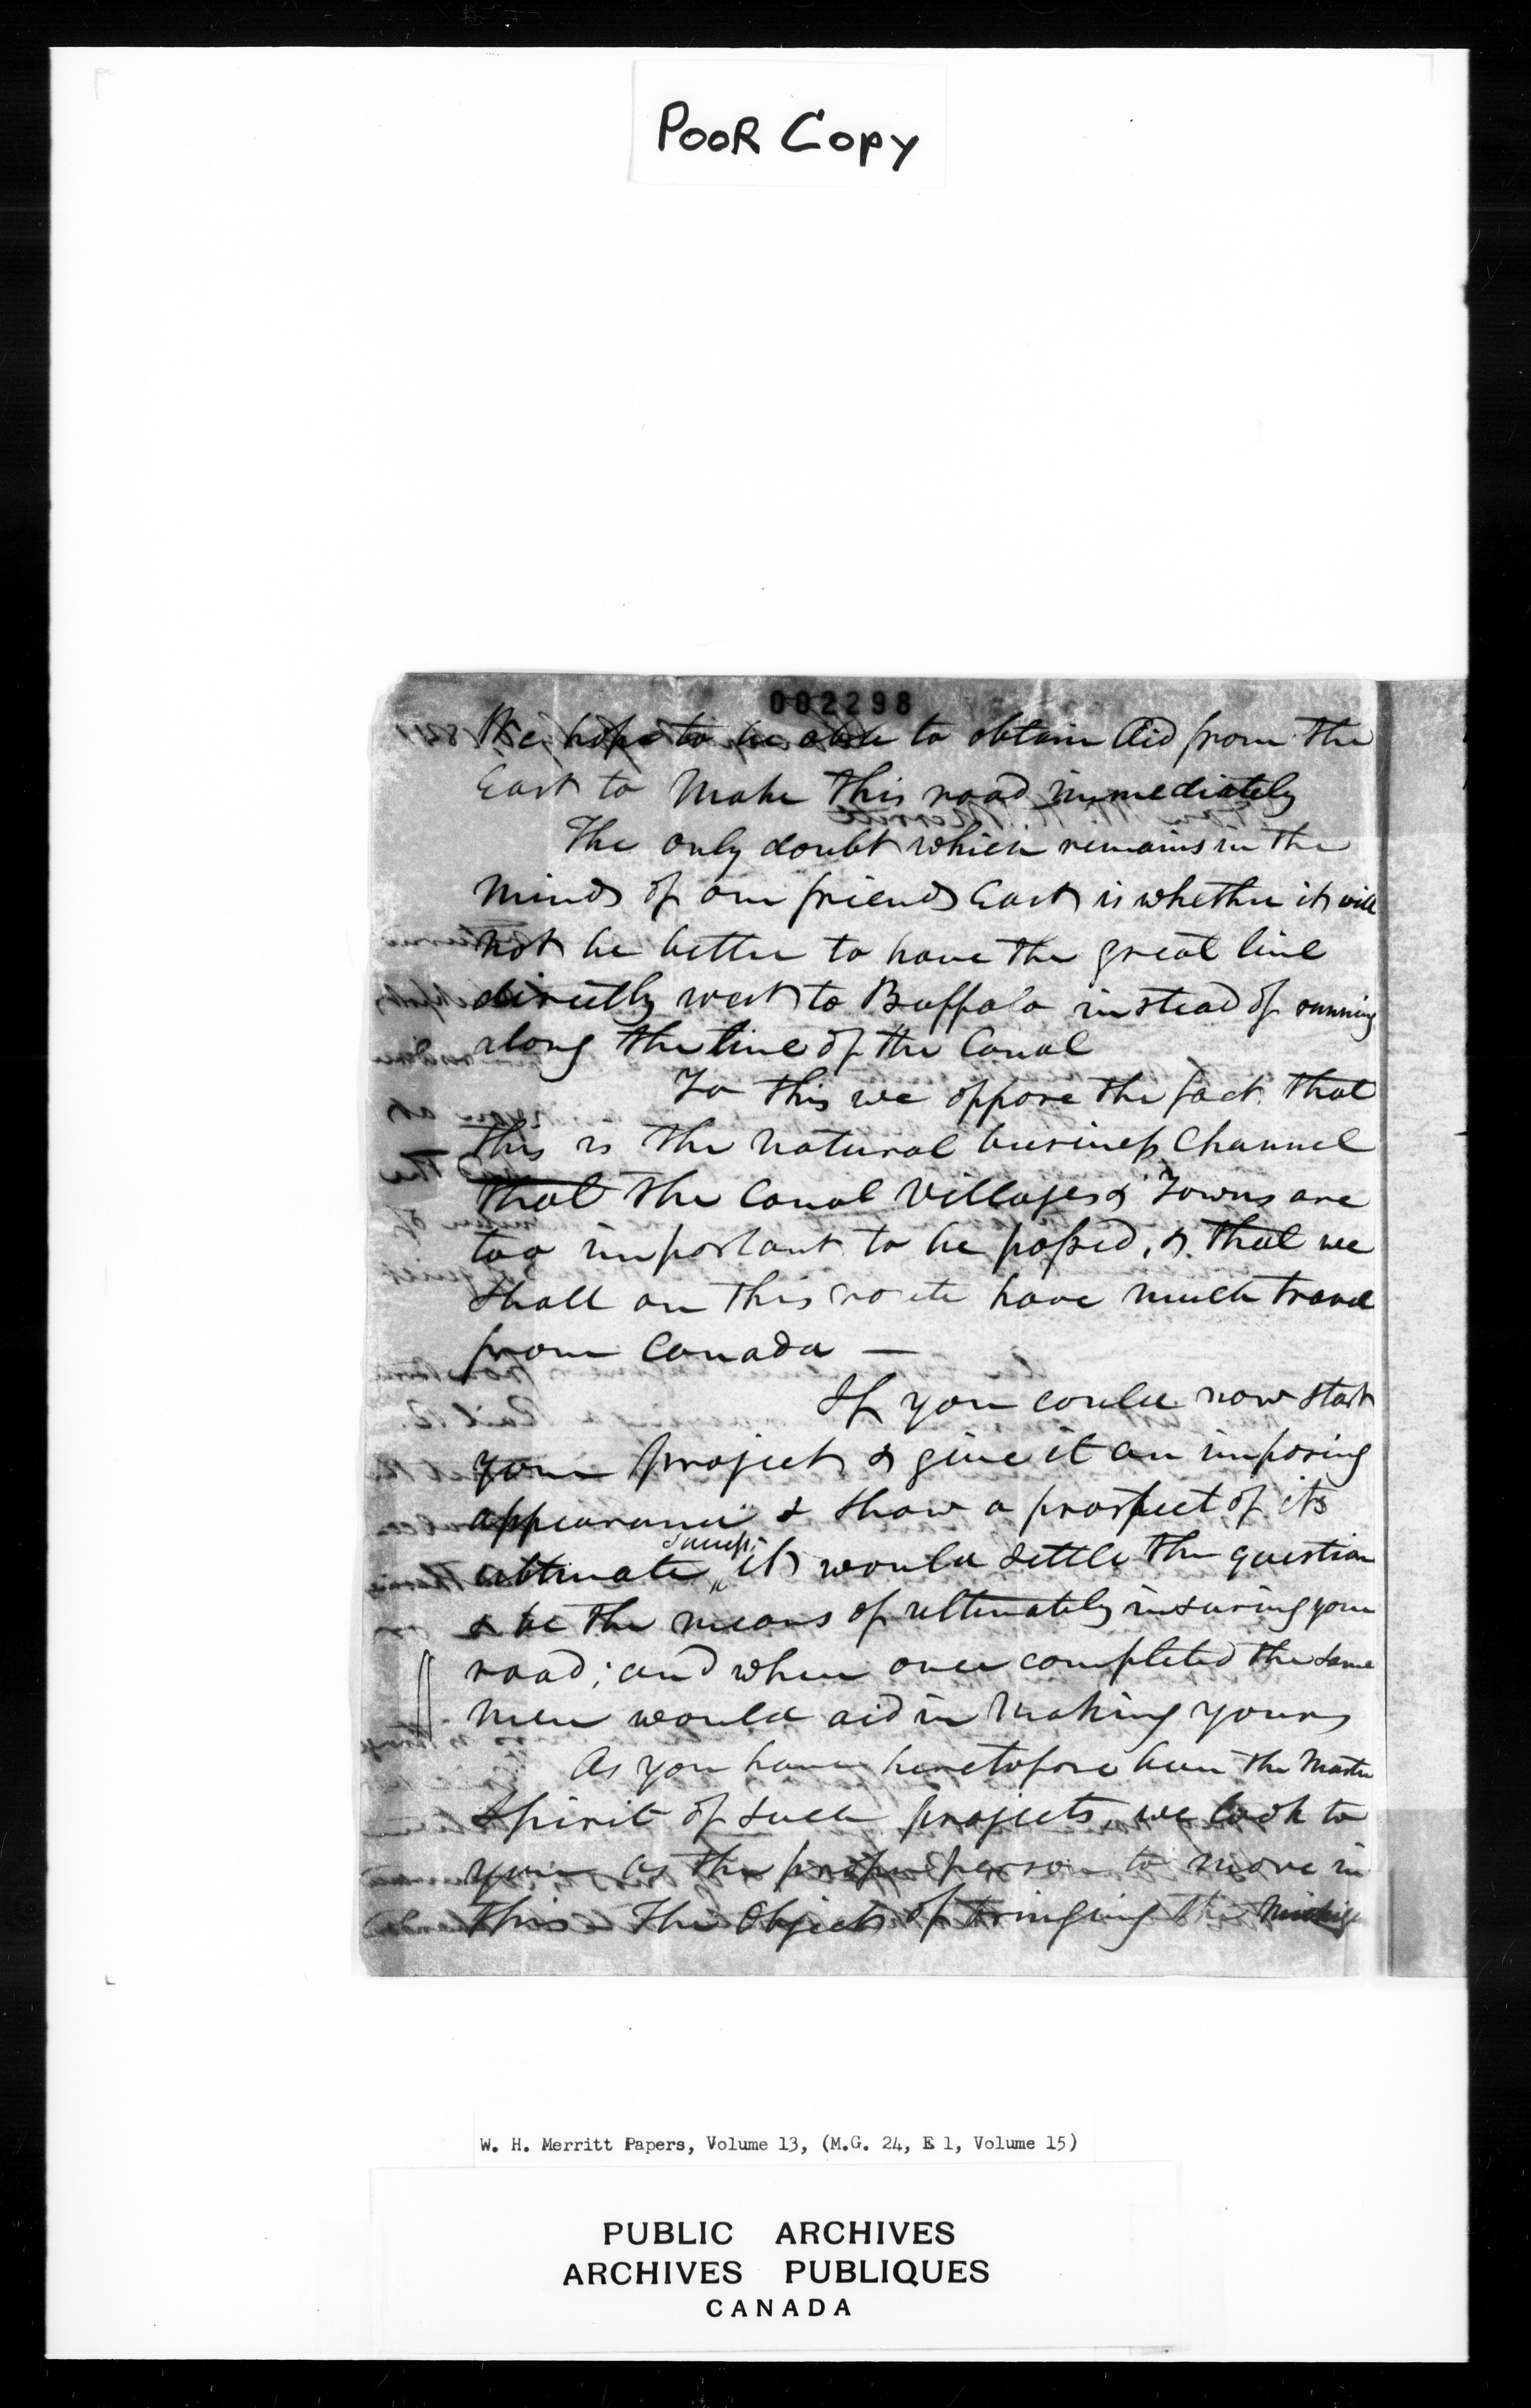 POOR COPY
002298
We hope to be able to obtain Aid from the
East to Make this road immediately
The only doubt which remains in the
Minds of our friends East is whether it will
Not be better to have the great line
directly west to Buffalo instead of running
along the line of the Canal
To this we oppose the fact that
this is the natural business Channel
that the Canal Villages & Towns are
too important to be passed, & that we
shall on this route have much travel
from Canada —
If you could now start
your project & give it an imposing
appearance & show a prospect of its
ultimate success, it would settle the question
& be the means of ultimately insuring your
road; and when once completed the same
Men would aid in Making yours
As you have heretofore been the Master
Spirit of such projects, we look to
you as the proper person to move in
this The Object of bringing the
W. H. Merritt Papers, Volume 13, (M.G. 24, E 1, Volume 15)
PUBLIC ARCHIVES
ARCHIVES PUBLIQUES
CANADA